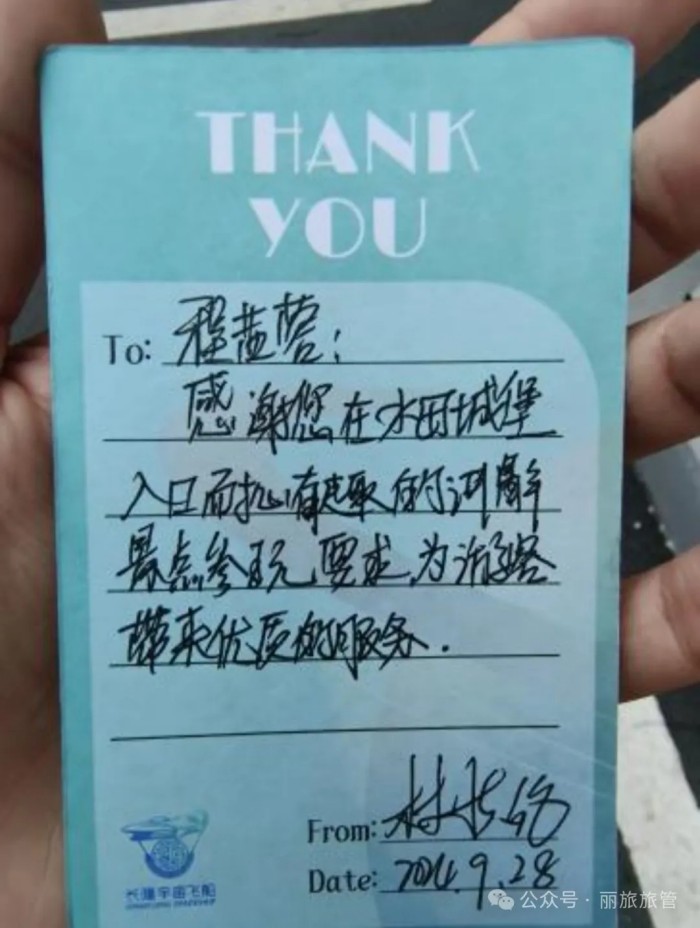 THANK
YOU
To: 程茜蓉：
感谢您在水田城堡
入口而热心有趣的讲解
景点参玩要求,为游客
带来优质的服务.
From:
Date: 2024.9.28
长隆宇宙飞船
公众号·丽旅旅管